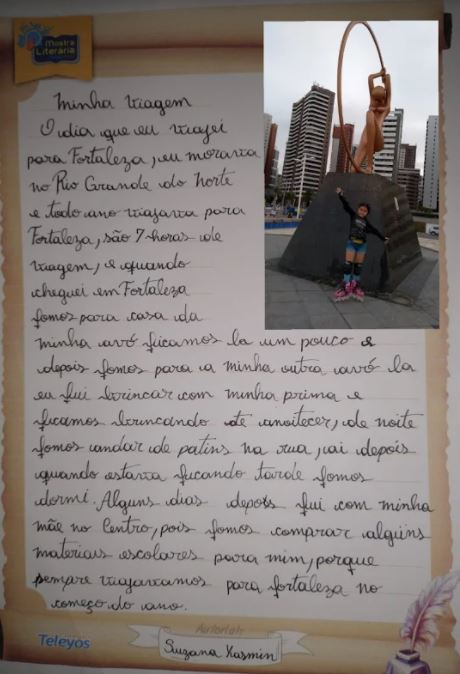 Mostra
Literária
Minha viagem
O dia que eu viajei
para Fortaleza, eu morava
no Rio Grande do Norte
e todo ano viajava para
Fortaleza, são 7 horas de
viagem, e quando
cheguei em Fortaleza
fomos para casa da
minha avó ficamos la um pouco e
depois fomos para a minha outra avó la
eu fui brincar com minha prima e
ficamos brincando até anoitecer, de noite
fomos andar de patins na rua, ai depois
quando estava ficando tarde fomos
dormi. Alguns dias depois fui com minha
mãe no Centro, pois fomos comprar alguns
materiais escolares para mim, porque
sempre viajavamos para fortaleza no
começo do ano.
Autoria:
Teleyos
Suzana Yasmin